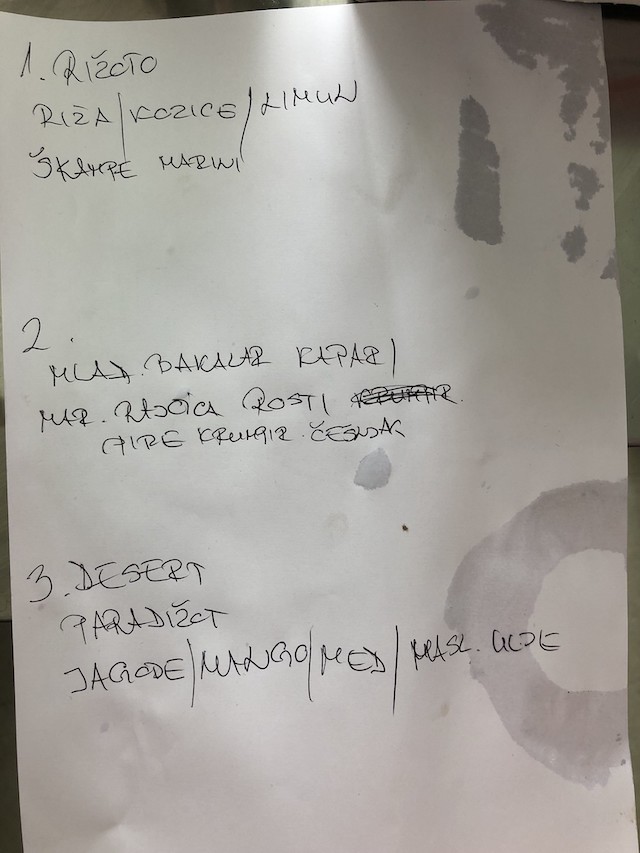 1. RIŽOTO
RIŽA/KOZICE/LIMUN
ŠKAMPE MARINI
2.
MLAD. BAKALAR KAPAR/
MAR. RAJČICA ROSTI
PIRE KRUMPIR. ČEŠNJAK
3. DESERT
PARADIŽOT
JAGODE/MANGO/MED/MASL. ULJE